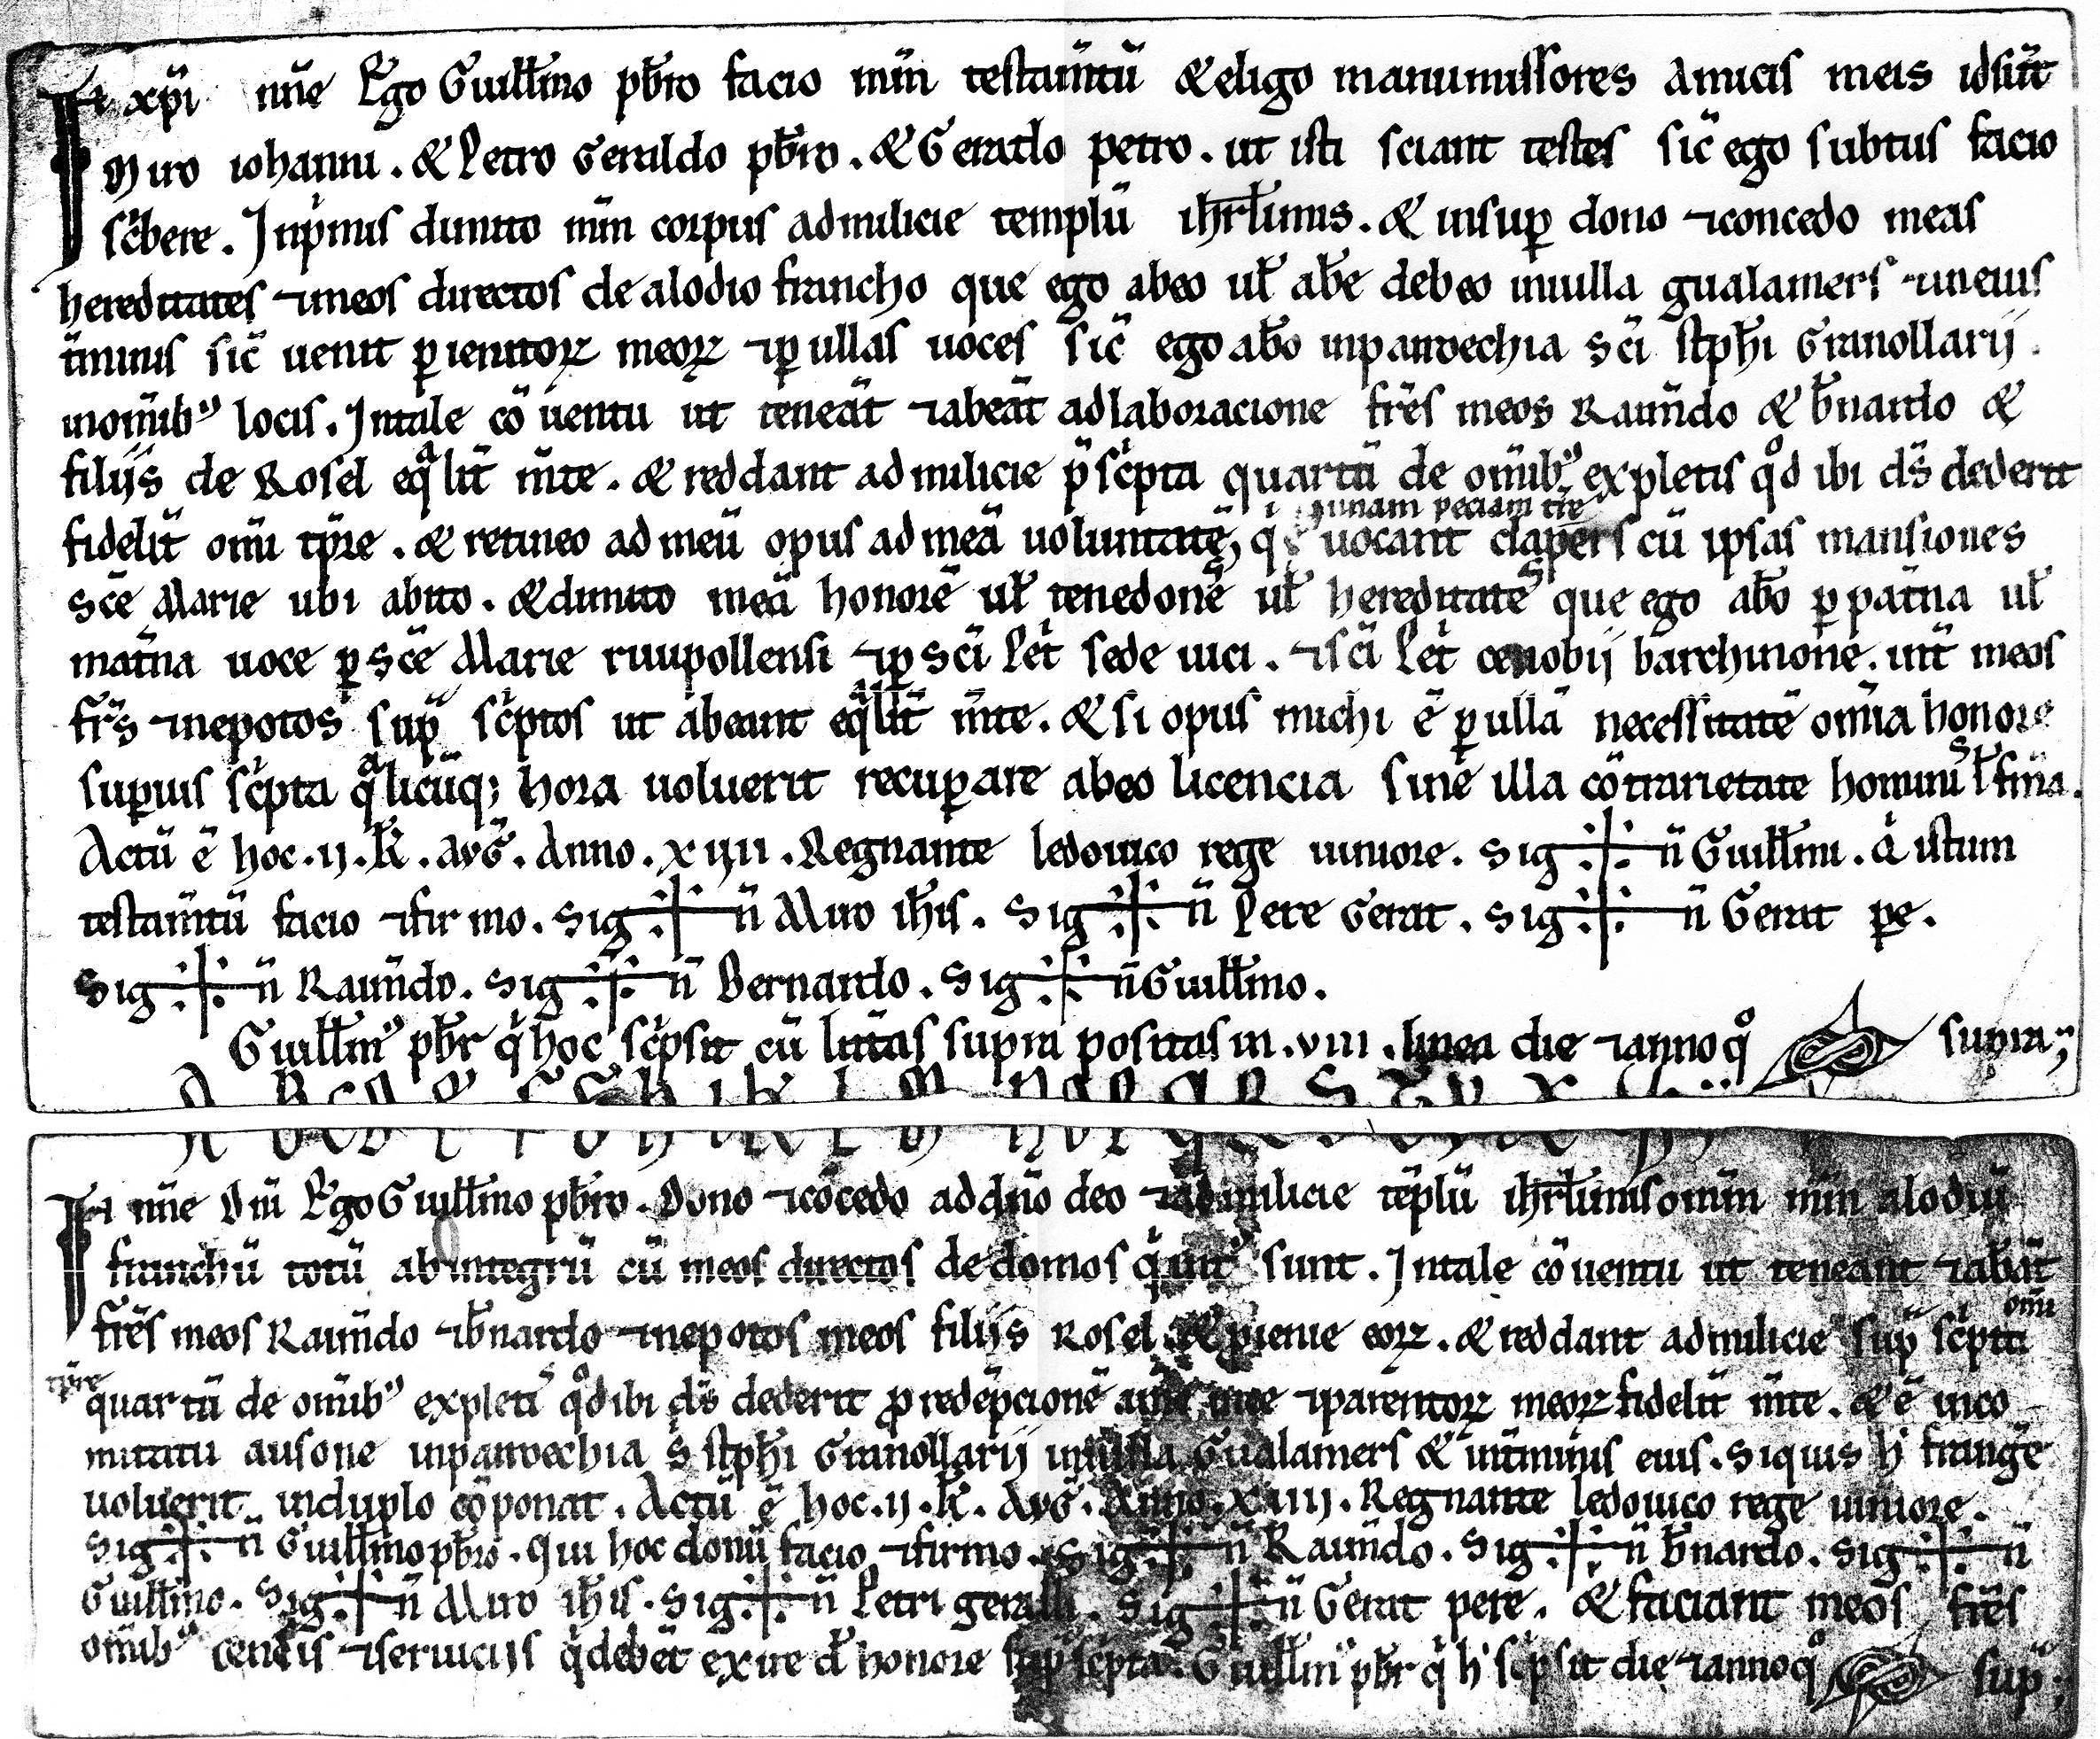 In xp̄i nn̄e Ego Guillm̄o pb̄ro facio mm̄ testam̄tū & eligo manumissores amicis meis id sūt
Miro iohanni . & Petro Geraldo pb̄ro . & Gerardo petro . ut isti sciant testes sic̄ ego subtus facio
sc̓bere . Inp̓mis dimito mm̄ corpus ad milicie templū ihrl̄imis . & insup̱ dono ⁊ concedo meas
hereditates ⁊ meos directos de alodio francho que ego abeo ul̄ ab̄e debeo in uilla gualamers ⁊ in eius
t̄minis sic̄ uenit p̱ ienitoꝝ meoꝝ ⁊ p̱ ullas uoces sic̄ ego ab̄o in parroechia sc̄i stph̄i Granollarij .
in om̄ibꝰ locis . In tale cō uentu ut teneāt ⁊ abeāt ad laboracione fr̄es meos Raim̄do & b̄nardo &
filijs de Rosel eq̊lit̄ m̄te . & reddant ad milicie p̄sc̓pta quartā de om̄ibꝰ expletis qd̊ ibi ds̄ dederit
fidelit̄ om̄i tp̄re . & retineo ad meū opus ad meā uoluntatē, q̓ uocant clapers cū ipsas mansiones
unam peciam tr̄e
sc̄e Marie ubi abito . & dimito meā honorē ul̄ tenedonē ul̄ hereditates que ego ab̄o p̱ pat̄na ul̄
mat̄na uoce p̱ sc̄e Marie riuipollensi ⁊ p̱ sc̄i Pet̓ sede uici . ⁊ sc̄i Pet̓ cenobij barchinone . int̄ meos
fr̄s ⁊ nepotos sup̱ sc̓ptos ut abeant eq̊lit̄ m̄te . & si opus michi ē p̱ ullā necessitatē om̄ia honore
superius sc̓pta q̊licūq; hora uoluerit recup̱are abeo licencia sine illa cōtrarietate hominūs l̄ fm̄ia .
Actū ē hoc . ij . k̄ . auḡ . Anno . xiiii . Regnante ledouico rege iuniore . sig n̄ Guillm̄i . Q̓ istum
testam̄tū facio ⁊ firmo . sig n̄ Miro ih̄is . sig n̄ Pere Gerat . sig n̄ Gerat pe .
sig n̄ Raim̄do . sig n̄ Bernardo . sig n̄ Guillm̄o .
Guillm̄ꝰ pb̄r q̓ hoc sc̓psit cū litt̄as supra positas in . viii . linea die ⁊ anno q̊ supra ;
In nn̄e Dn̄i Ego Guillm̄o pb̄ro . Dono ⁊ cōcedo ad dn̄o deo ⁊ ad milicie tēplū ihrl̄imis om̄m mm̄ alodiū
franchū totū ab integrū cū meos directos de domos q̓ int̓ sunt . In tale cō uentu ut teneant ⁊ ab̄āt
fr̄es meos Raim̄do ⁊ b̄nardo ⁊ nepotos meos filijs Rosel & pienie eoꝝ . & reddant ad milicie sup̱ sc̓pta om̄i
tp̄re quartā de om̄ibꝰ expletis qd̊ ibi ds̄ dederit ꝓ redēpcionē anīe mee ⁊ parentoꝝ meoꝝ fidelit̄ m̄te . & ē in co
mitatu ausone in parroechia s̄ stph̄i Granollarij in uilla Gualamers & in t̄minis eius . Si quis h̓ frang̓e
uoluerit in duplo cōponat . Actū ē hoc . ij . k̄ . Auḡ . Anno . xiiii . Regnante ledouico rege iuniore .
sig n̄ Guillm̄o pb̄ro . qui hoc donū facio ⁊ firmo . sig n̄ Raim̄do . sig n̄ b̄nardo . sig n̄
Guillm̄o . sig n̄ Miro ih̄is . sig n̄ Petri geralli . sig n̄ Gerat pere . & faciant meos fr̄es
om̄ibꝰ censis ⁊ seruicijs q̓ debēt exire d̄ honore sup̱ sc̓pta . Guillm̄ꝰ pb̄r q̓ h̓ sc̓psit die ⁊ anno q̊ sup̱ ;